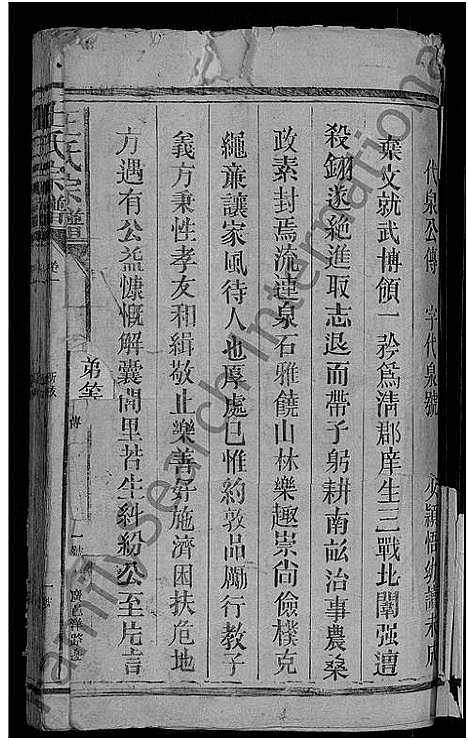 代泉公傳 字代泉號 少穎悟幼讀未成
棄文就武博領一矜爲清郡庠生三戰北闈强遭
殺翎遂絶進取志退而帶子躬耕南畝治事農桑
政素封焉流連泉石雅饒山林樂趣崇尚儉樸克
繩亷讓家風待人也厚處已惟約敦品勵行教子
義方秉性孝友和緝敬止樂善好施濟困扶危地
方遇有公益慷慨解囊閭里若生糾紛公至片言
王氏宗譜 卷一
弟筌
傳
familysearch international